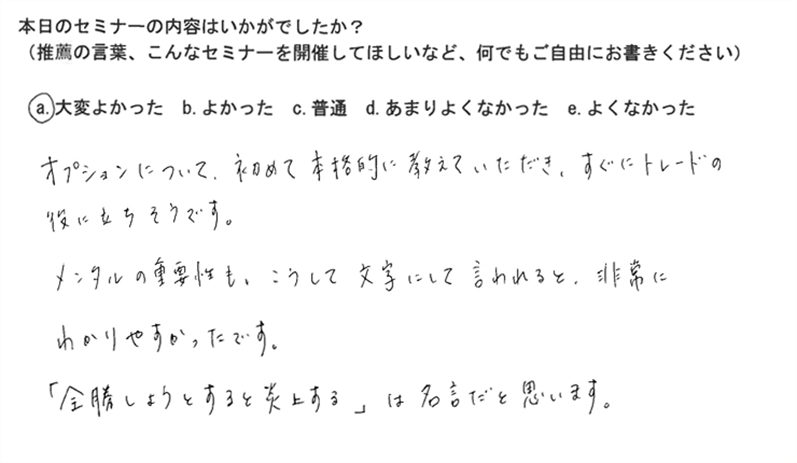 本日のセミナーの内容はいかがでしたか？
（推薦の言葉、こんなセミナーを開催してほしいなど、何でもご自由にお書きください）
a. 大変よかった b. よかった c. 普通 d. あまりよくなかった e. よくなかった
オプションについて、初めて本格的に教えていただき、すぐにトレードの
役に立ちそうです。
メンタルの重要性も、こうして文字にして言われると、非常に
わかりやすかったです。
「全勝しようとすると炎上する」は名言だと思います。